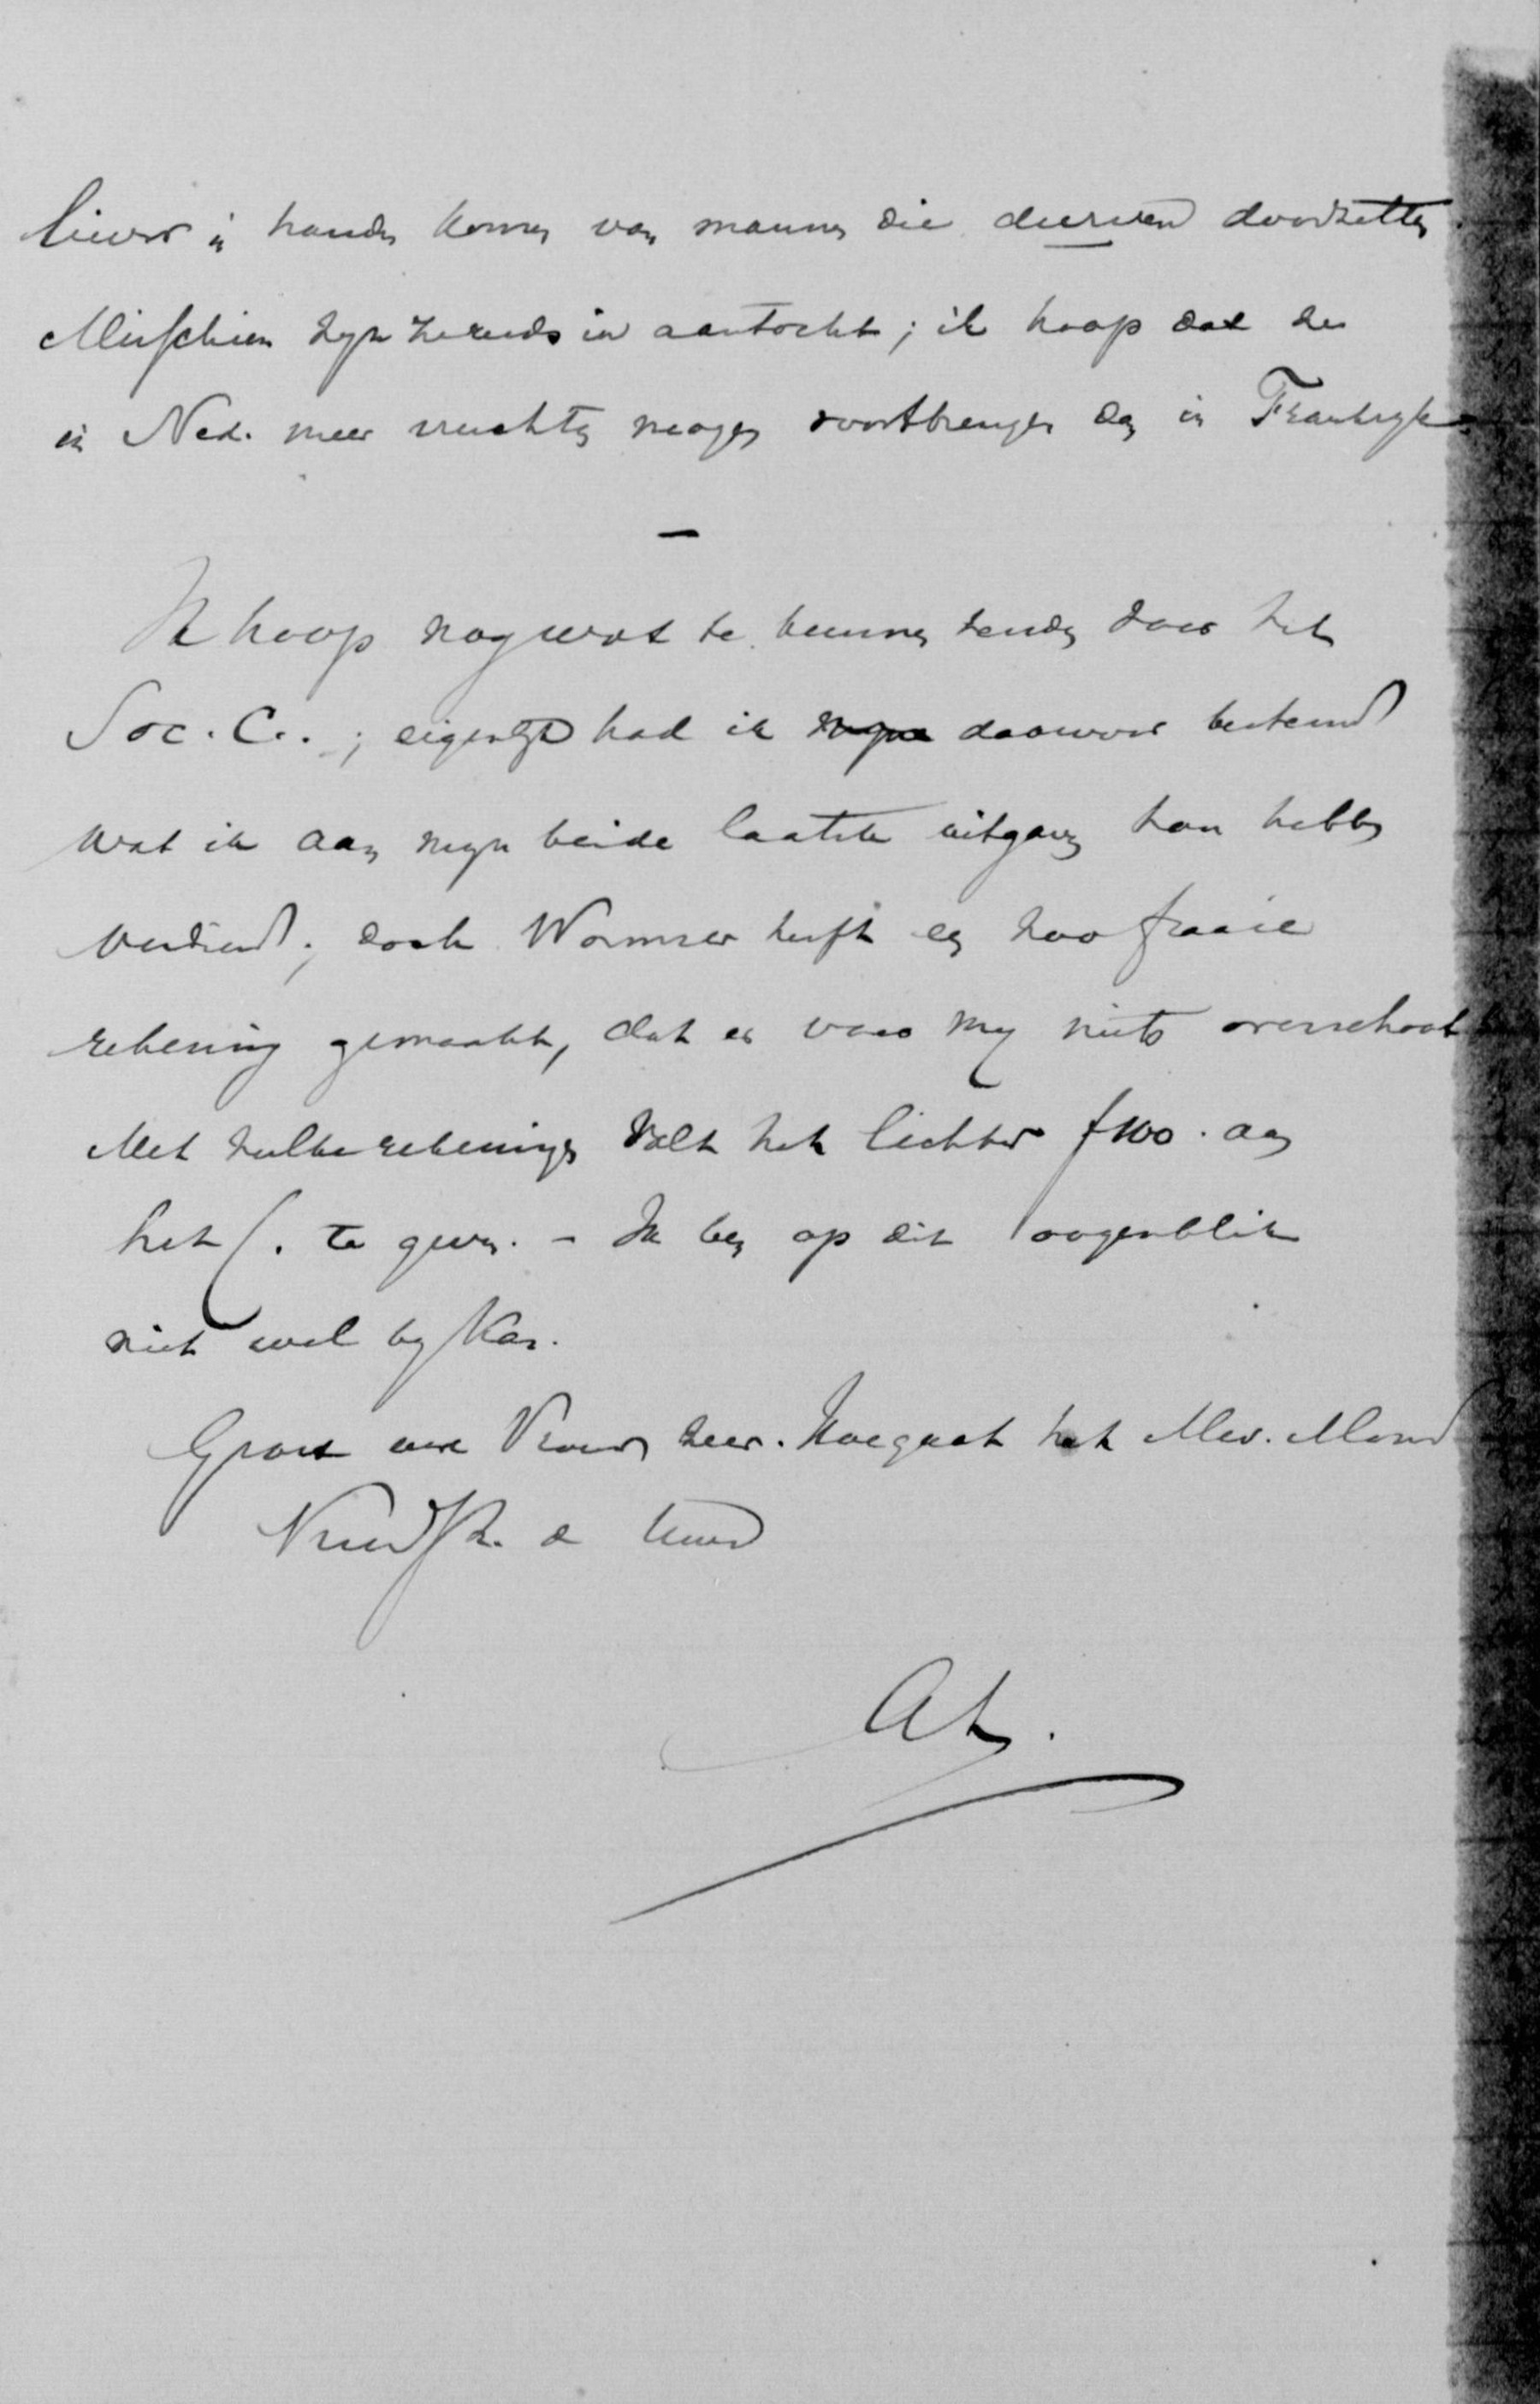 liever in handen komen van mannen die durven doorzetten.
Misschien zijn ze reeds in aantocht; ik hoop dat ze
in Ned. meer vruchten mogen voortbrengen dan in Frankrijk.
—
Ik hoop nog wat te kunnen zenden voor het
Soc. C.; eigenlijk had ik daarvoor bestemd
wat ik aan mijn beide laatste uitgaven kon hebben
verdiend; doch Wormser heeft een zoo fraaie
rekening gemaakt, dat er voor mij niets overschoot
Met zulke rekeningen valt het lichter f 100. aan
het C. te geven. – Ik ben op dit oogenblik
niet wel bij Kas.
Groet uwe Vrouw zeer. Hoe gaat het Mev.
Vriendsch. de Uwe